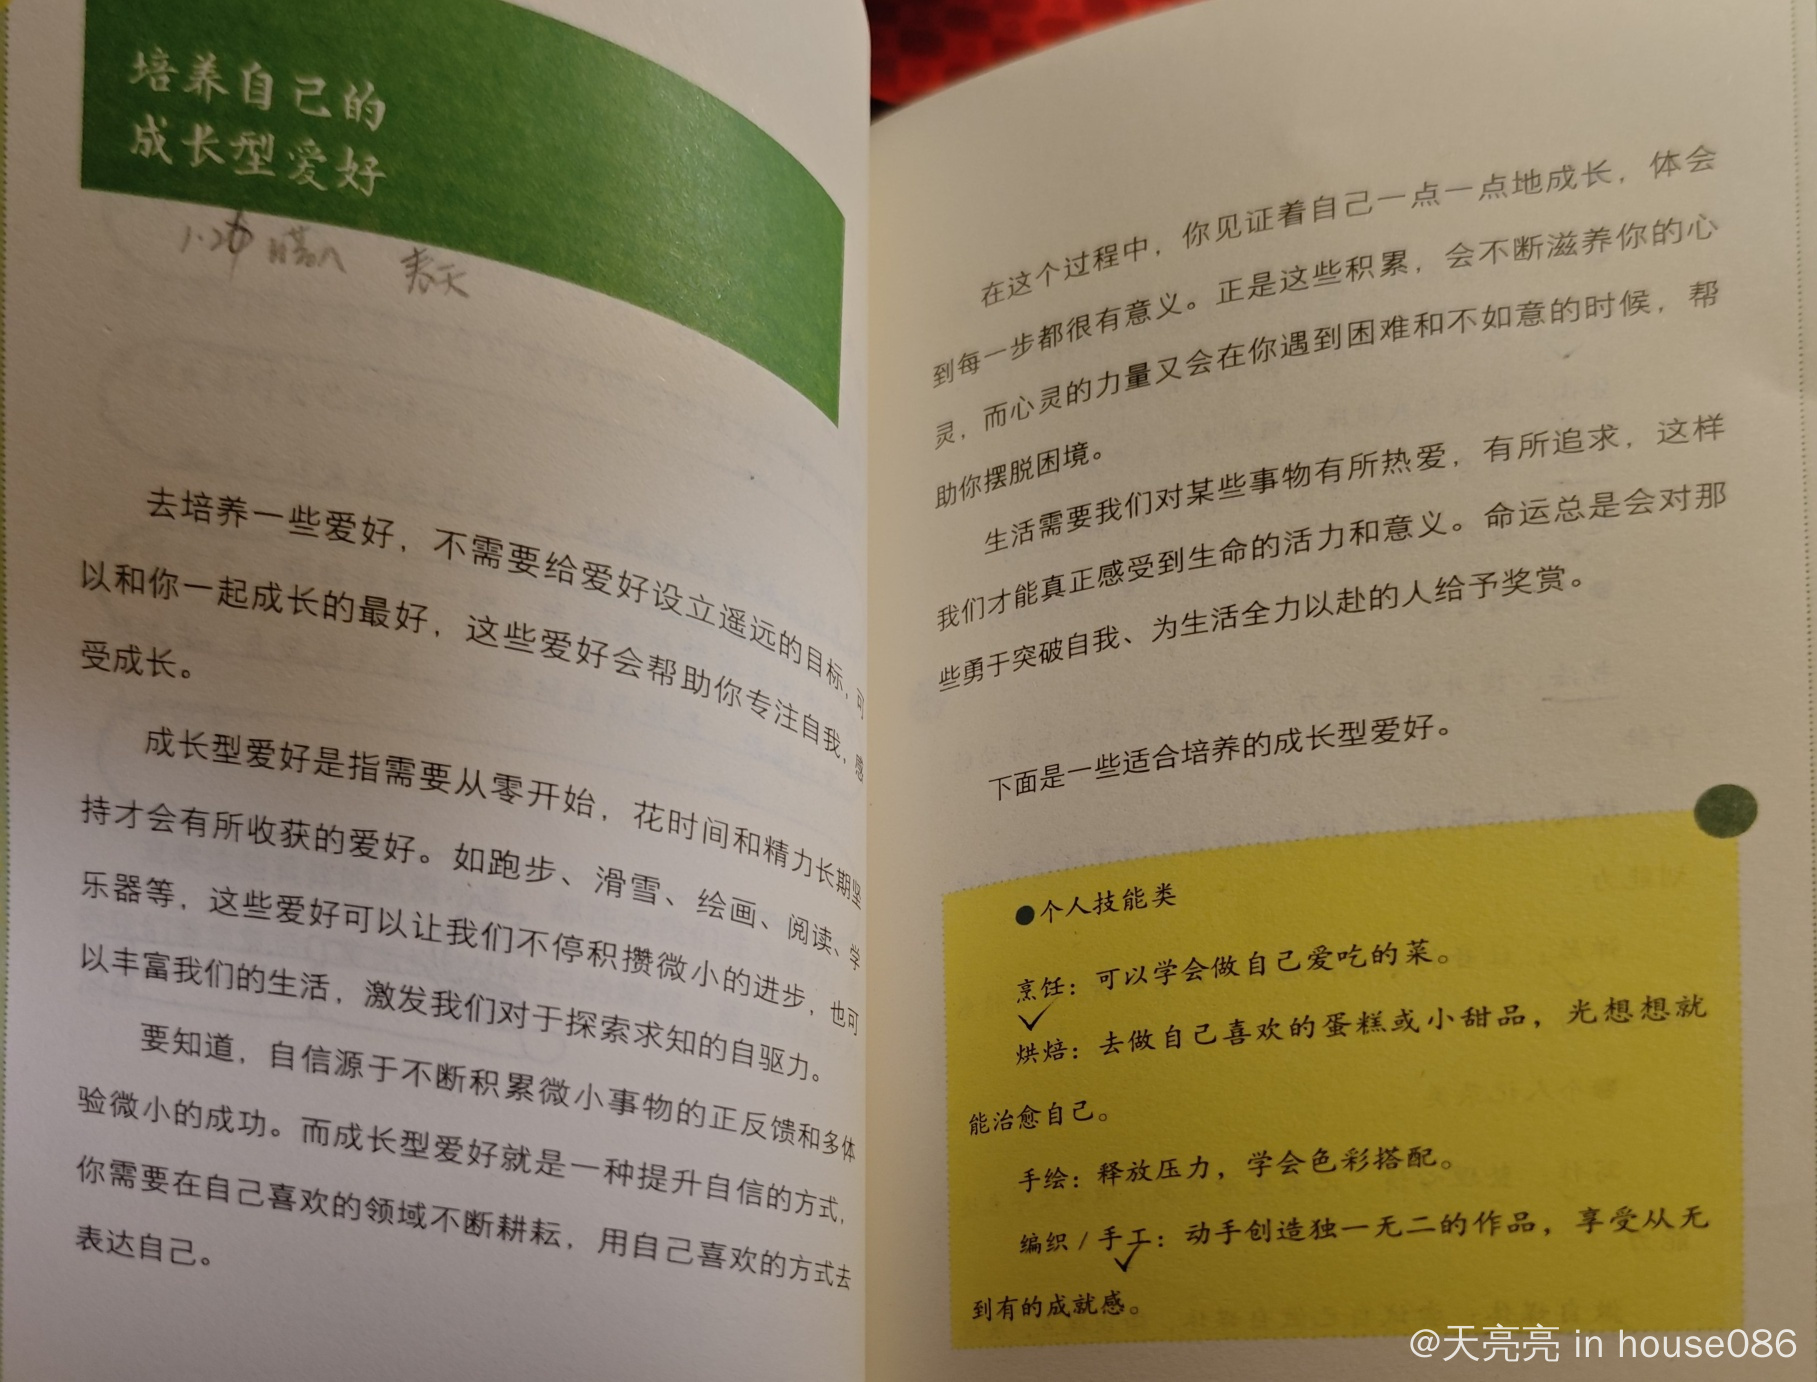 培养自己的
成长型爱好
1.26 春天
去培养一些爱好，不需要给爱好设立遥远的目标，可
以和你一起成长的最好，这些爱好会帮助你专注自我，感
受成长。
成长型爱好是指需要从零开始，花时间和精力长期坚
持才会有所收获的爱好。如跑步、滑雪、绘画、阅读、学
乐器等，这些爱好可以让我们不停积攒微小的进步，也可
以丰富我们的生活，激发我们对于探索求知的自驱力。
要知道，自信源于不断积累微小事物的正反馈和多体
验微小的成功。而成长型爱好就是一种提升自信的方式，
你需要在自己喜欢的领域不断耕耘，用自己喜欢的方式去
表达自己。
在这个过程中，你见证着自己一点一点地成长，体会
到每一步都很有意义。正是这些积累，会不断滋养你的心
灵，而心灵的力量又会在你遇到困难和不如意的时候，帮
助你摆脱困境。
生活需要我们对某些事物有所热爱，有所追求，这样
我们才能真正感受到生命的活力和意义。命运总是会对那
些勇于突破自我、为生活全力以赴的人给予奖赏。
下面是一些适合培养的成长型爱好。
●个人技能类
烹饪：可以学会做自己爱吃的菜。
烘焙：去做自己喜欢的蛋糕或小甜品，光想想就
能治愈自己。
手绘：释放压力，学会色彩搭配。
编织/手工：动手创造独一无二的作品，享受从无
到有的成就感。
@天亮亮 in house086